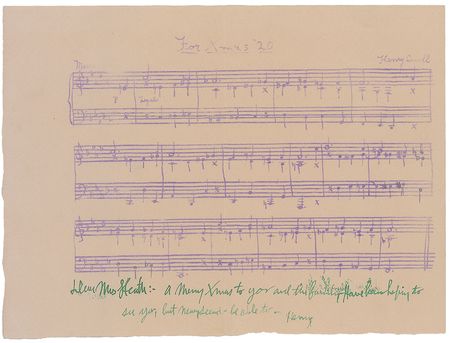 For Xmas '20
Henry Cowell
Dear Mrs Heath:- a Merry Xmas to you and the family. Have been hoping to
see you, but never seem to be able to -
Henry